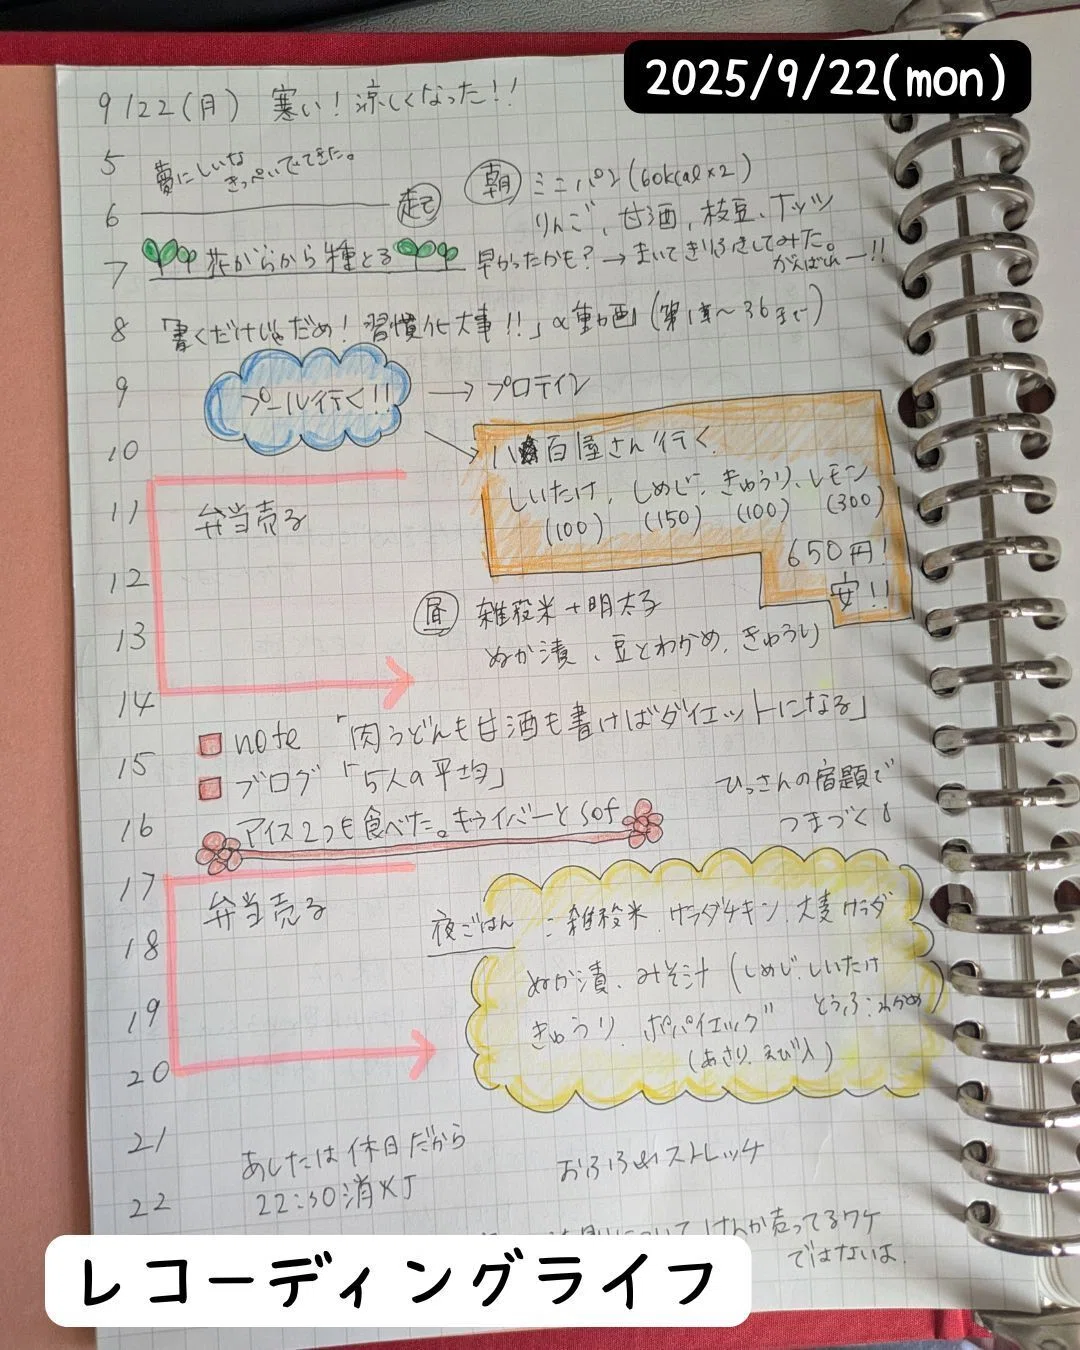 2025/9/22(mon)
9/22(月) 寒い!涼しくなった!!
5
夢にしいな
きっぺいでてきた。
6
起
朝 ミニパン(60kcal×2)
りんご、甘酒、枝豆、ナッツ
7
花がらから種とる
早かったかも?→まいてきりふきしてみた。
がんばれー!!
8 「書くだけじゃだめ!習慣化大事!!」の動画(第1章~36まで)
9
プールに行く!! → プロテイン
10
八百屋さん行く
しいたけ、しめじ、きゅうり、レモン
(100) (150) (100) (300)
650円!
安!!
11
弁当売る
12
13
昼 雑穀米+明太子
ぬか漬、豆とわかめ、きゅうり
14
note 「肉うどんも甘酒も書けばダイエットになる」
15
ブログ「5人の平均」
ひっさんの宿題で
つまづく
16
アイス2つも食べた。キウイバーとsof
17
弁当売る
18
夜ごはん:雑穀米、サラダチキン、大麦サラダ
ぬか漬、みそ汁(しめじ、しいたけ
とうふ、わかめ)
きゅうり、ポパイエッグ
(あさり、えび入)
19
20
21
あしたは休日だから
22:30消灯
おふろ後ストレッチ
22
について けんか売ってるワケ
ではないよ
レコーディングライフ